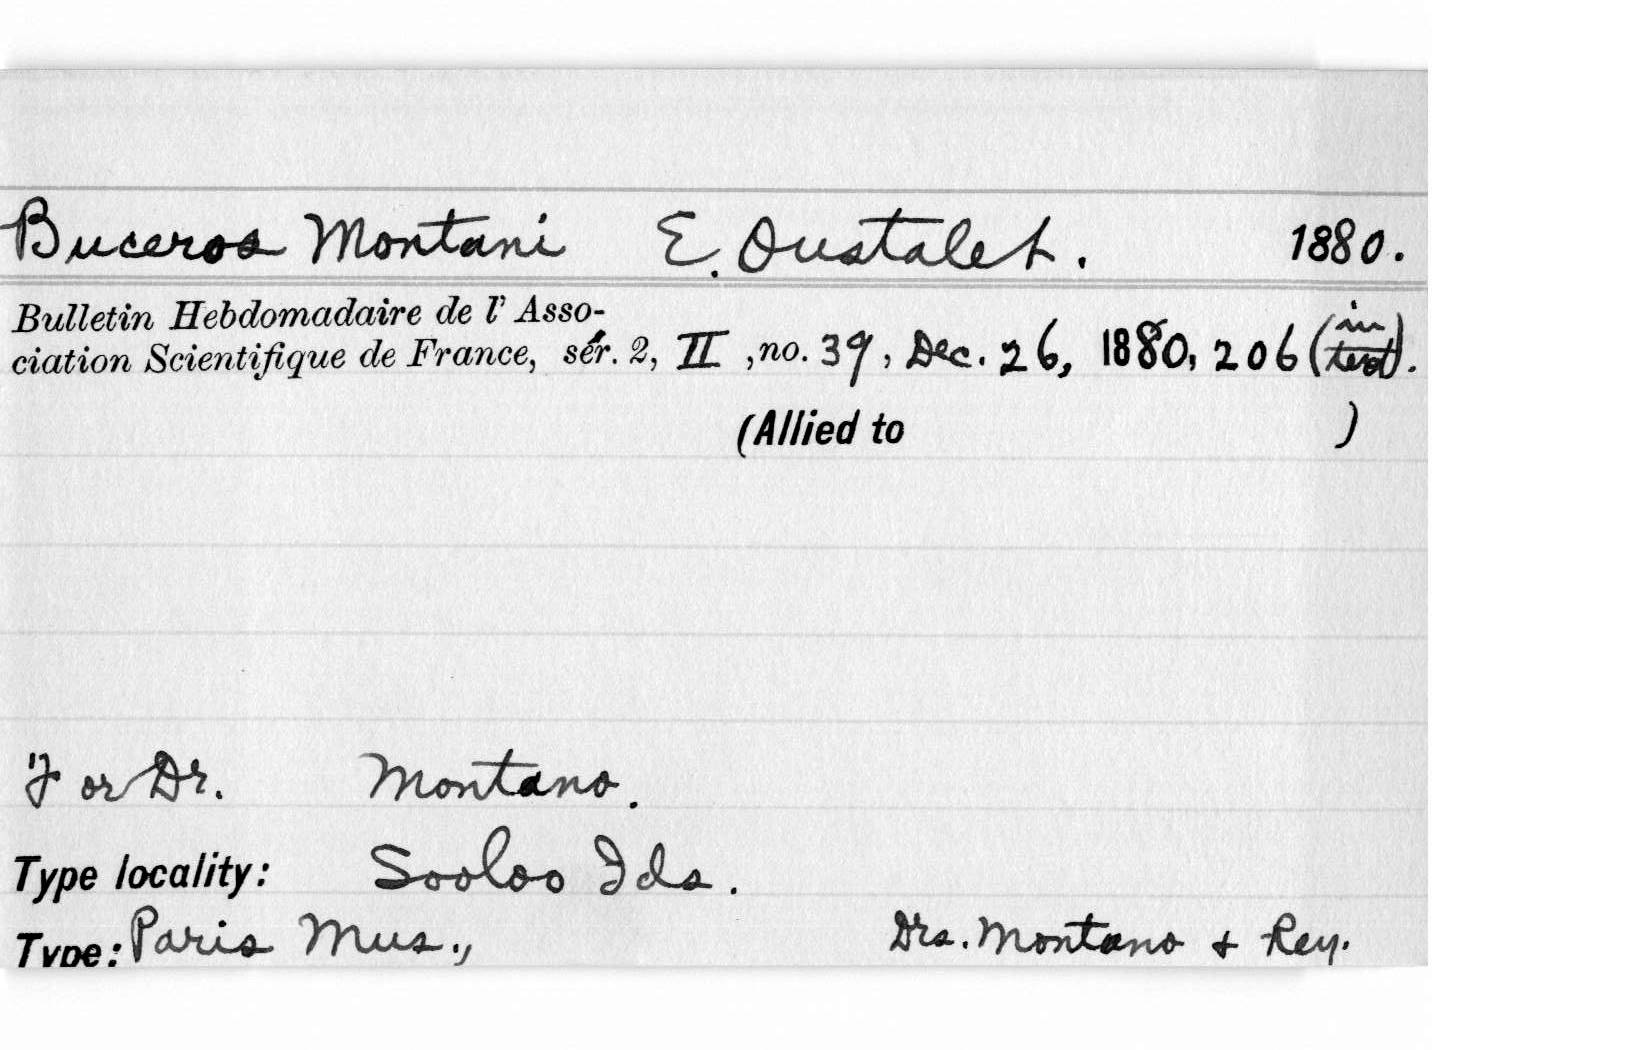 Buceros Montani E. Oustalet. 1880.
Bulletin Hebdomadaire de l' Asso-
ciation Scientifique de France, sér. 2, II, no. 39, Dec. 26, 1880, 206 (in text).
(Allied to )
For Dr. Montano.
Type locality: Sooloo Ids.
Type: Paris Mus., Drs. Montano & Rey.